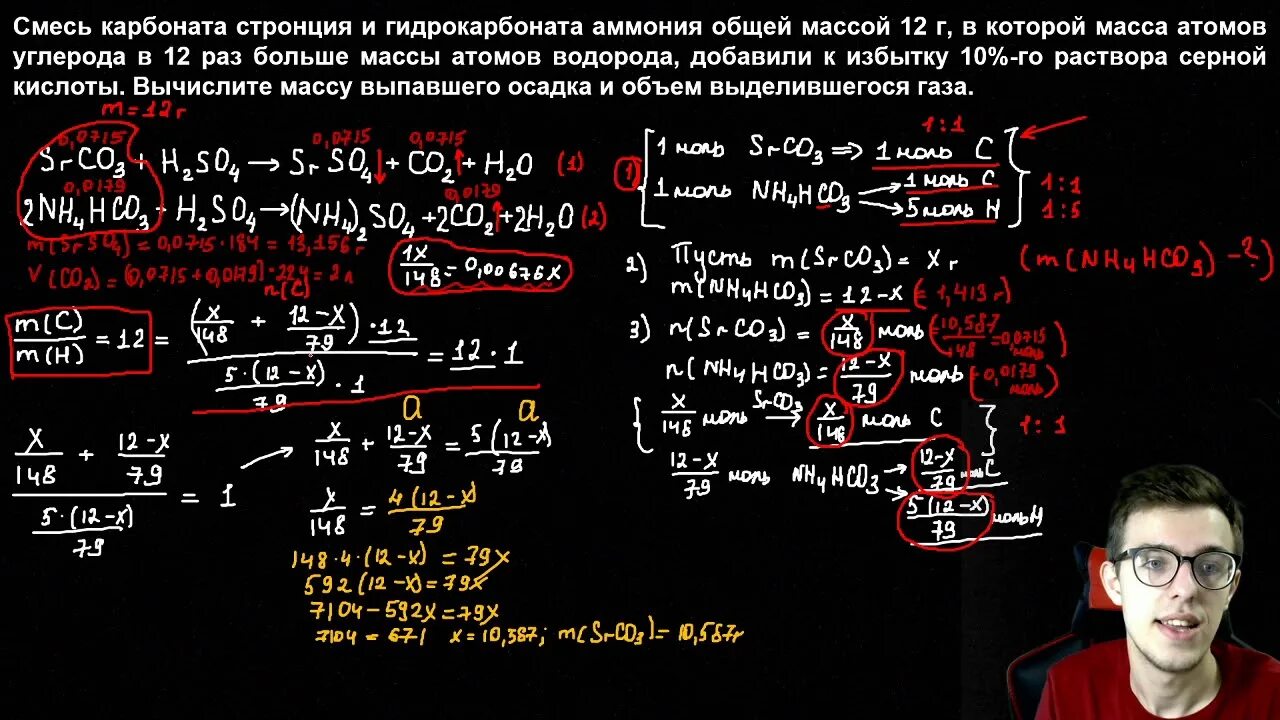 Смесь карбоната стронция и гидрокарбоната аммония общей массой 12 г, в которой масса атомов
углерода в 12 раз больше массы атомов водорода, добавили к избытку 10%-го раствора серной
кислоты. Вычислите массу выпавшего осадка и объем выделившегося газа.
m=12 г
0,0715 0,0715 0,0715
SrCO₃ + H₂SO₄ → SrSO₄↓ + CO₂↑ + H₂O (1)
0,0179 0,0179
2NH₄HCO₃ + H₂SO₄ → (NH₄)₂SO₄ + 2CO₂↑ + 2H₂O (2)
m(SrSO₄) = 0,0715 · 184 = 13,156 г
V(CO₂) = (0,0715 + 0,0179) · 22,4 = 2 л
1x/148 = 0,00676x
n(C)
m(C)/m(H) = 12 = ((x/148 + (12-x)/79) · 12)/((5·(12-x))/79 · 1) = 12 · 1
(x/148 + (12-x)/79)/((5·(12-x))/79) = 1
a a
x/148 + (12-x)/79 = 5(12-x)/79
x/148 = 4(12-x)/79
148·4·(12-x) = 79x
592(12-x) = 79x
7104-592x = 79x
7104 = 671 x = 10,587; m(SrCO₃) = 10,587г
1:1
1) 1 моль SrCO₃ ⇒ 1 моль C
1 моль NH₄HCO₃ → 1 моль C 1:1
→ 5 моль H 1:5
2) Пусть m(SrCO₃) = x г (m(NH₄HCO₃) - ?)
m(NH₄HCO₃) = 12-x (= 1,413 г)
3) n(SrCO₃) = x/148 моль (= 10,587/148 = 0,0715 моль)
n(NH₄HCO₃) = (12-x)/79 моль (= 0,0179 моль)
x/148 моль SrCO₃ → x/148 моль C 1:1
(12-x)/79 моль NH₄HCO₃ → (12-x)/79 моль C
→ 5(12-x)/79 моль H